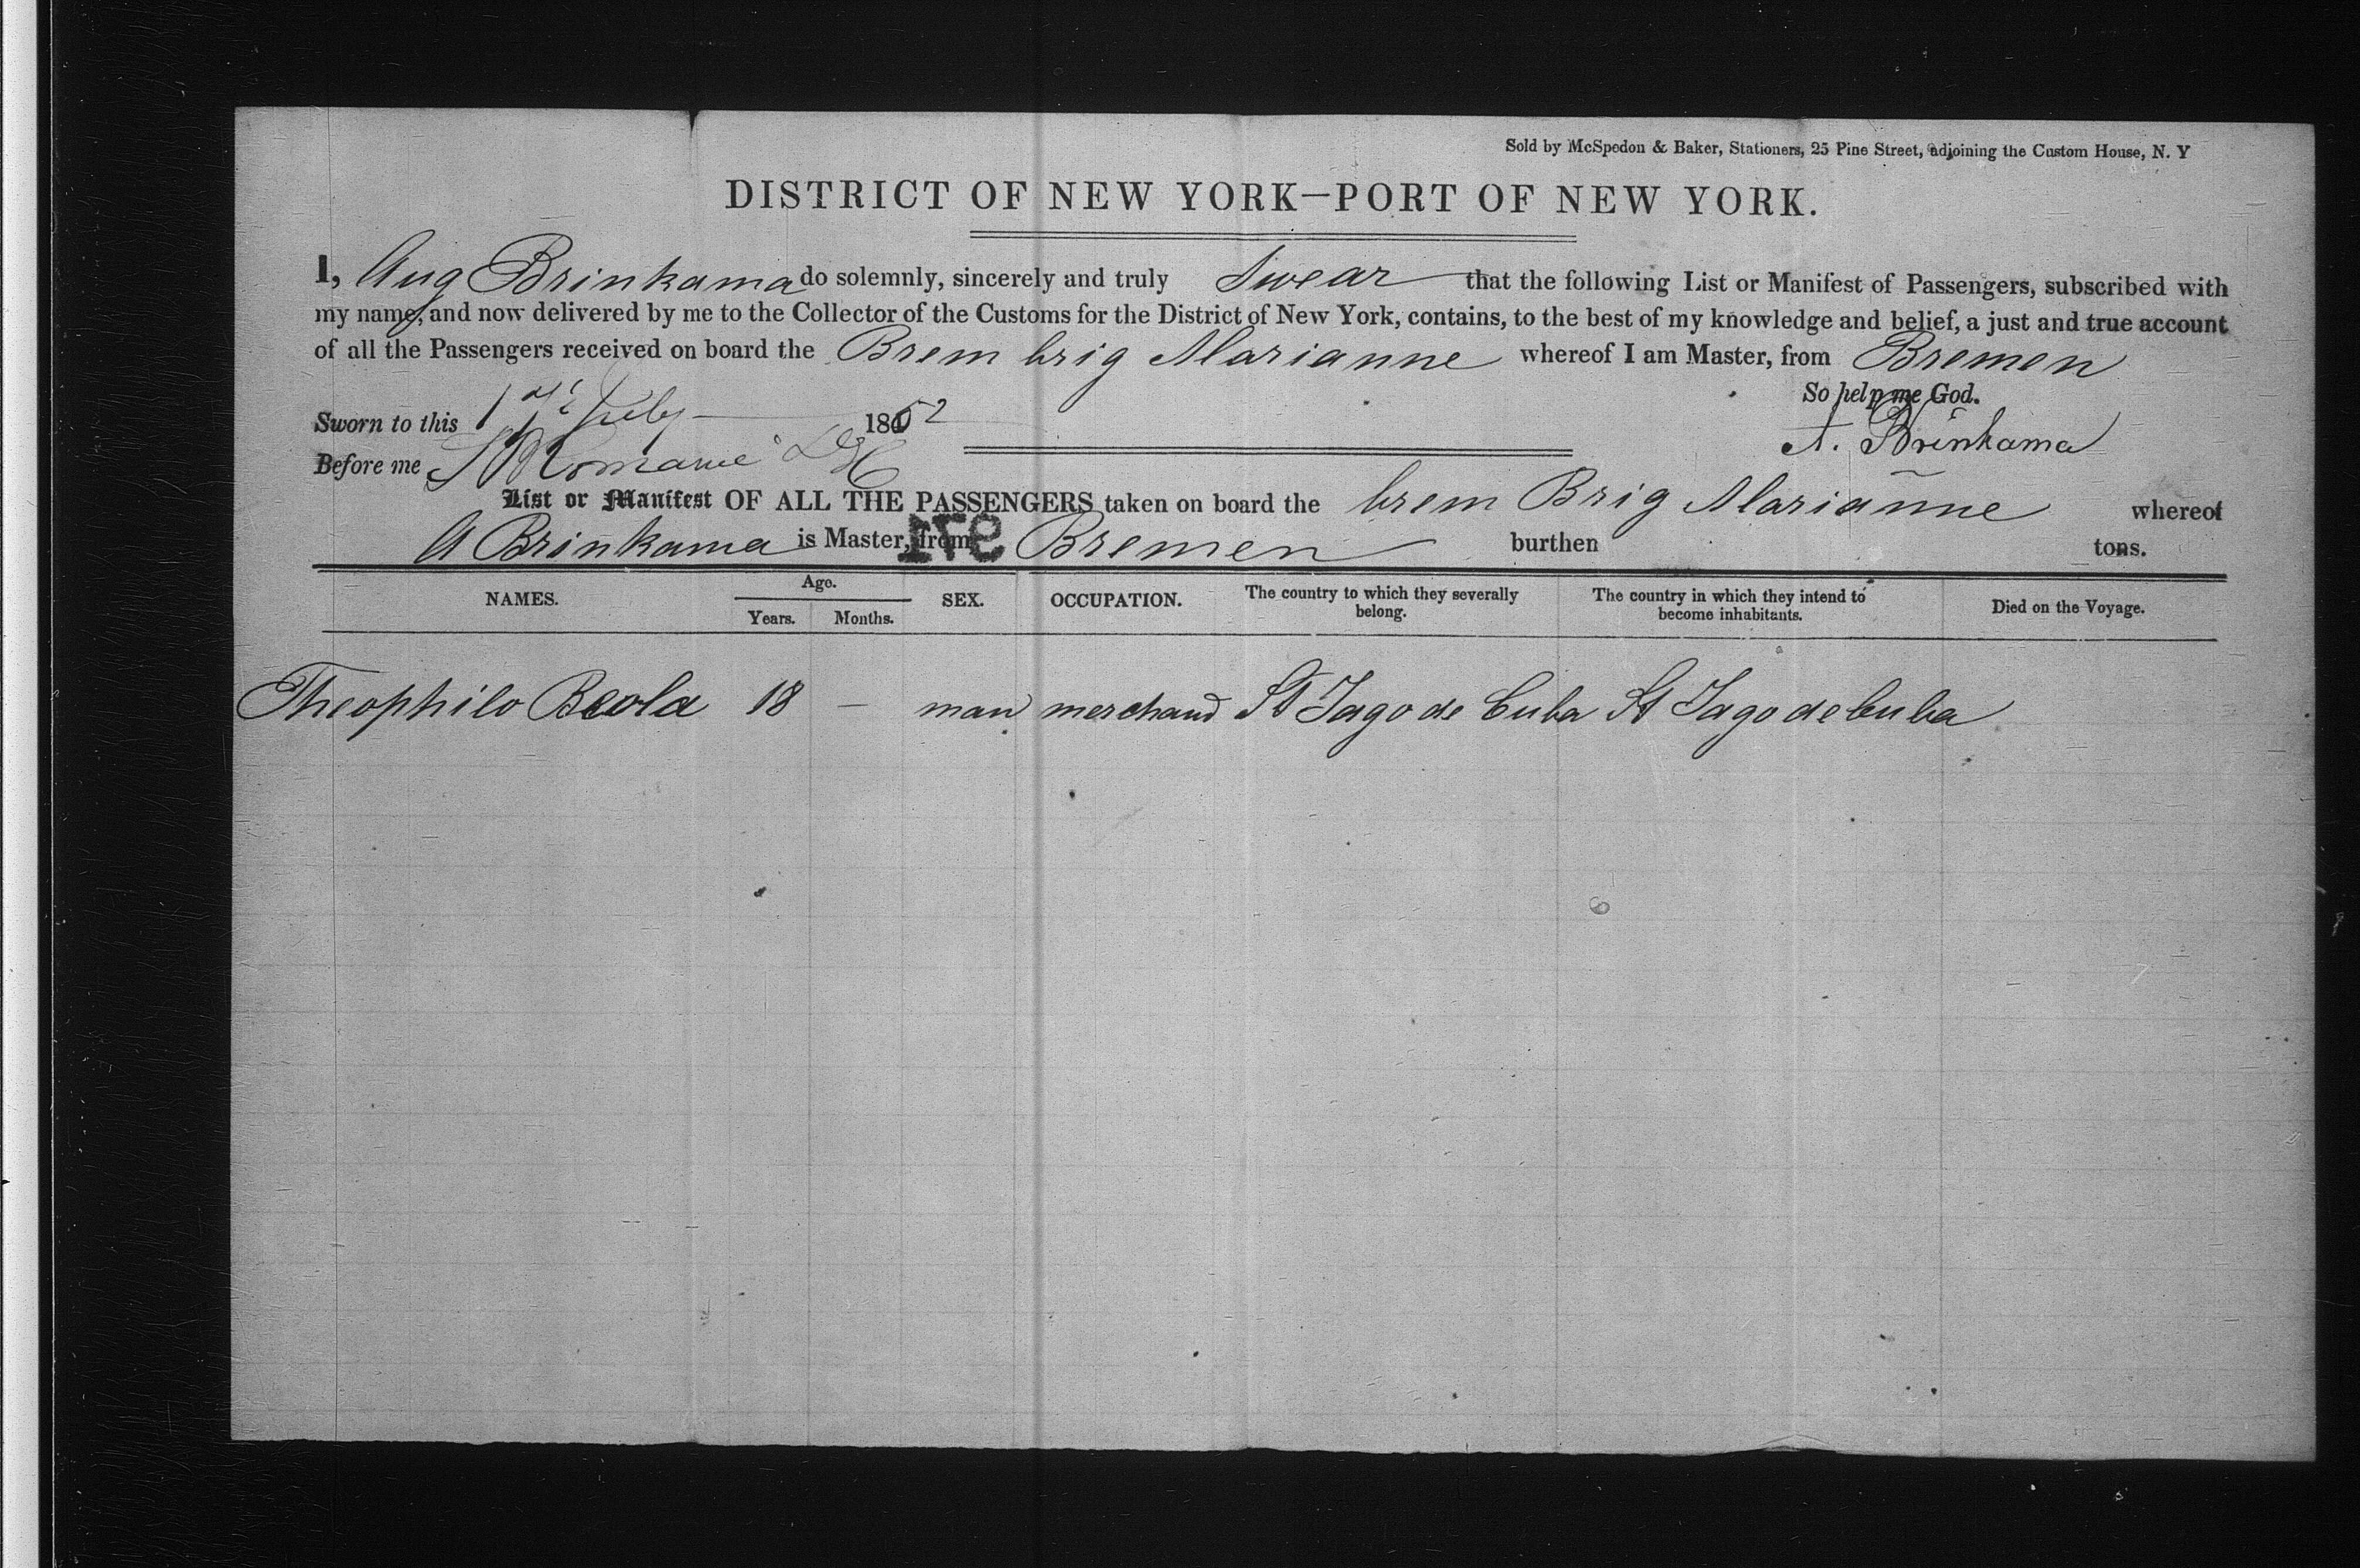 Sold by McSpedon & Baker, Stationers, 25 Pine Street, adjoining the Custom House, N. Y
DISTRICT OF NEW YORK—PORT OF NEW YORK.
I, Aug Brinkama do solemnly, sincerely and truly swear that the following List or Manifest of Passengers, subscribed with
my name, and now delivered by me to the Collector of the Customs for the District of New York, contains, to the best of my knowledge and belief, a just and true account
of all the Passengers received on board the Brem brig Marianne whereof I am Master, from Bremen
So help me God.
Sworn to this July 1852
A. Brinkama
Before me
List or Manifest OF ALL THE PASSENGERS taken on board the brem Brig Marianne whereof
A Brinkama is Master, from Bremen burthen tons.
971
NAMES. Age. Years. Months. SEX. OCCUPATION. The country to which they severally belong. The country in which they intend to become inhabitants. Died on the Voyage.
Theophilo Beola 18 — man merchand St Jago de Cuba St Jago de Cuba